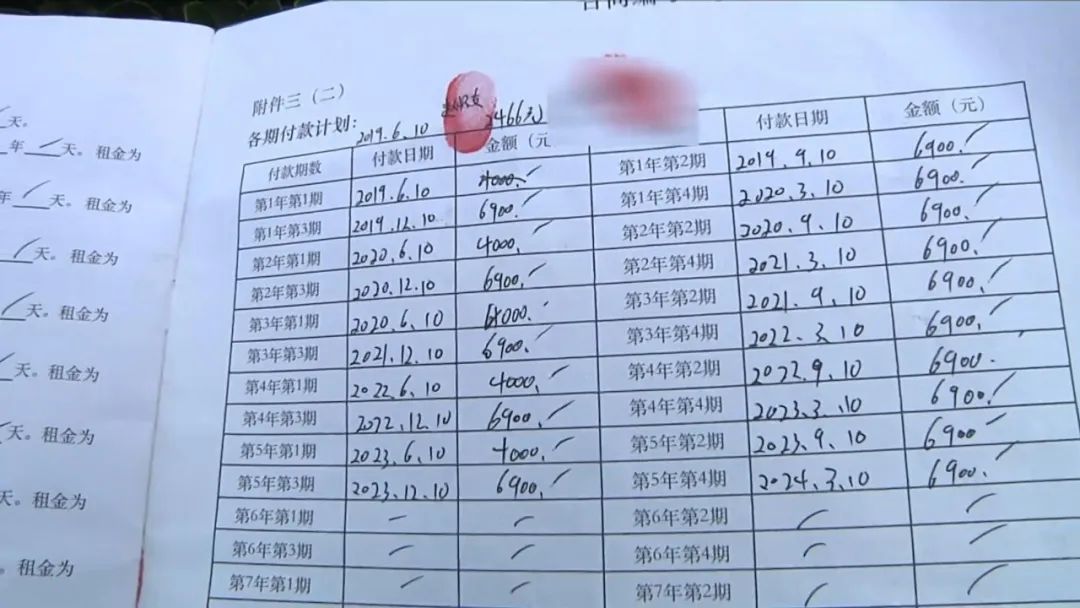 天。
年 天。租金为
年 天。租金为
天。租金为
天。租金为
天。租金为
天。租金为
天。租金为
。租金为
附件三（二）
各期付款计划：2019.6.10 2466元
付款期数 付款日期 金额（元 付款日期 金额（元）
第1年第1期 2019.6.10 4000. 第1年第2期 2019.9.10 6900.
第1年第3期 2019.12.10 6900. 第1年第4期 2020.3.10 6900.
第2年第1期 2020.6.10 4000. 第2年第2期 2020.9.10 6900.
第2年第3期 2020.12.10 6900. 第2年第4期 2021.3.10 6900.
第3年第1期 2020.6.10 4000. 第3年第2期 2021.9.10 6900.
第3年第3期 2021.12.10 6900. 第3年第4期 2022.3.10 6900.
第4年第1期 2022.6.10 4000. 第4年第2期 2022.9.10 6900.
第4年第3期 2022.12.10 6900. 第4年第4期 2023.3.10 6900.
第5年第1期 2023.6.10 4000. 第5年第2期 2023.9.10 6900
第5年第3期 2023.12.10 6900. 第5年第4期 2024.3.10 6900.
第6年第1期 第6年第2期
第6年第3期 第6年第4期
第7年第1期 第7年第2期